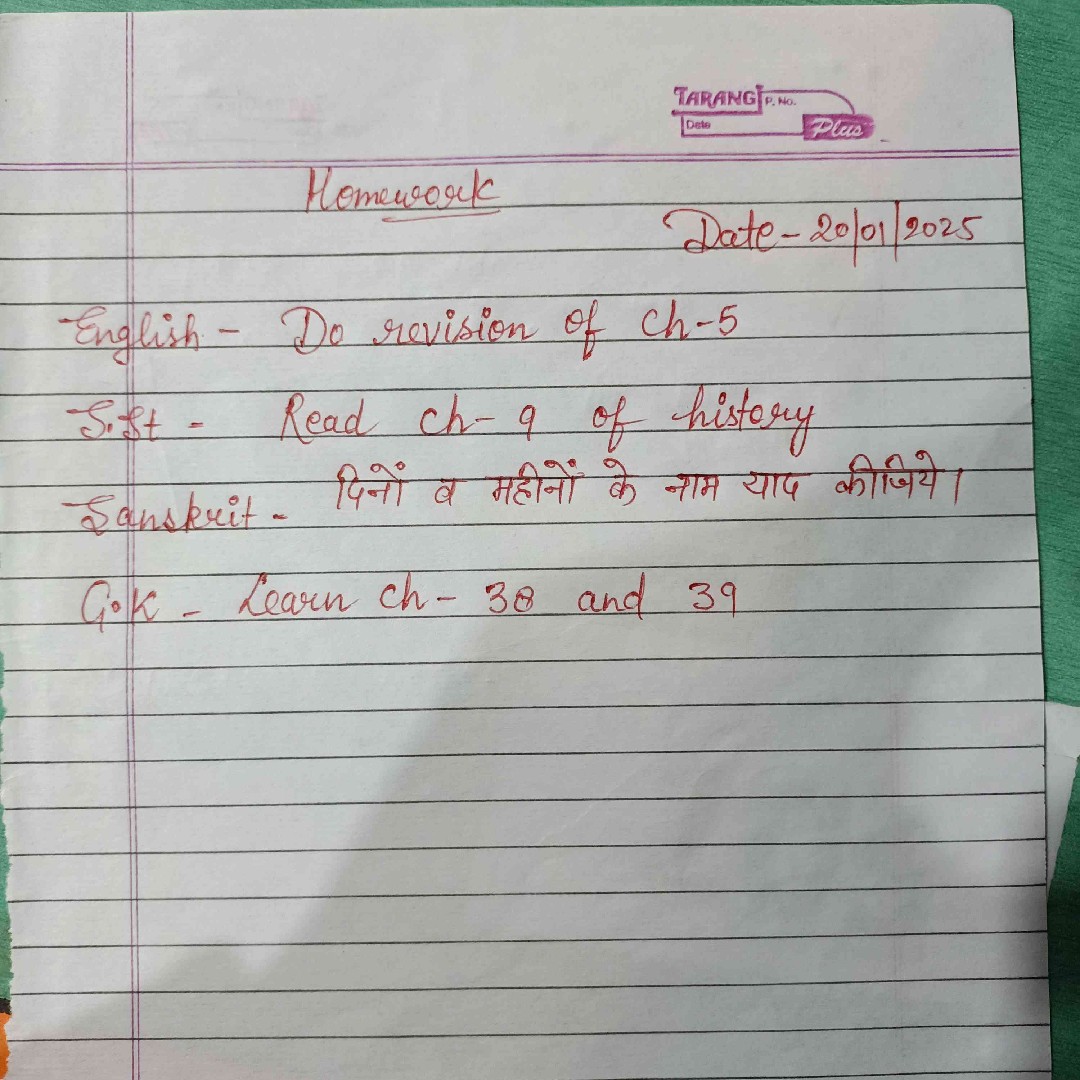 TARANG P. No.
Date Plus
Homework
Date - 20/01/2025
English - Do revision of ch-5
S.St - Read ch- 9 of history
Sanskrit - दिनों व महीनों के नाम याद कीजिये।
G.K - Learn ch - 38 and 39